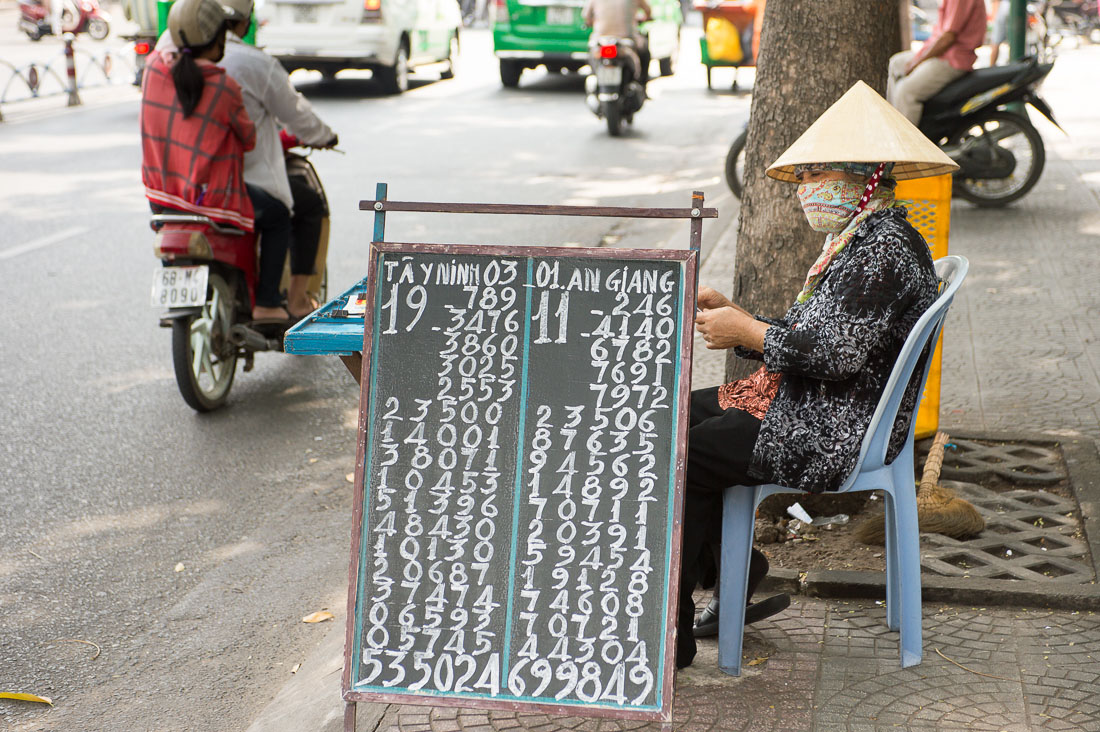 68-M
8090
TÂY NINH 03 - 01. AN GIANG
19 - 789 11 - 246
- 3476 - 4140
3860 6782
3025 7691
2553 7972
23500 23506
14001 87635
38071 94562
10453 14892
51396 70711
48430 20391
10130 59454
20687 19128
37474 74608
06593 70721
05745 44304
535024 699849